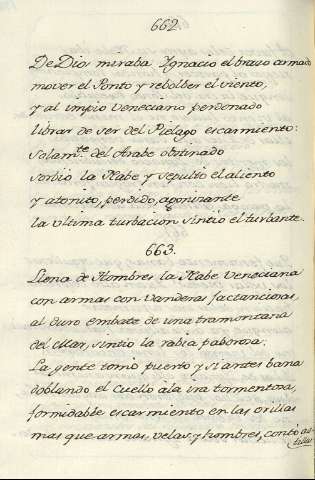 662.
De Dios miraba Ygnacio el brazo armado
mover el Ponto y rebolber el viento,
y al impio veneciano perdonado
librar de ser del Pielago escarmiento:
Solam.te del Arabe obstinado
sorbio la Nabe y sepulto el aliento
y atonito, perdido, agonizante
la ultima turbacion sintio el turbante.
663.
Llena de Hombres la Nabe veneciana
con armas con vanderas jactanciosas,
al duro embate de una tramontana
del Mar, sintio la rabia paborosa.
La gente tomó puerto y si antes bana
doblando el Cuello á la ira tormentosa,
formidable escarmiento en las orillas
mas que armas, velas, y hombres, contó as-
tillas